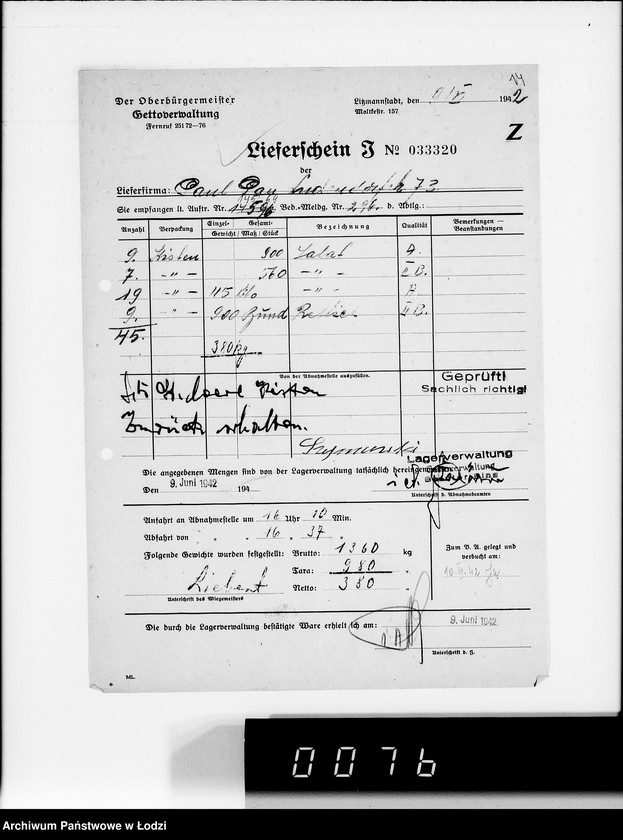 14
Der Oberbürgermeister
Gettoverwaltung
Fernruf 25172—76
Litzmannstadt, den 9/VI 1942
Moltkestr. 157
Z
Lieferschein J № 033320
der
Lieferfirma: Paul 73
Sie empfangen lt. Auftr. Nr. Bed.-Meldg. Nr. 296. d. Abtlg.:
Anzahl Verpackung Einzel- Gesamt- Gewicht/Maß/Stück Bezeichnung Qualität Bemerkungen — Beanstandungen
9. Kisten 900 Salat A.
7. -"- 560 -"- II B.
19 -"- 115 Kilo -"- A
9. -"- 900 Bund II B.
45.
380 kg
Von der Abnahmestelle auszufüllen.
Geprüft!
Sachlich richtig!
leere Kisten
Zurück erhalten.
Szymanski
Lagerverwaltung
Die angegebenen Mengen sind von der Lagerverwaltung tatsächlich
Den 9. Juni 1942 194
Unterschrift d. Abnahmebeamten
Anfahrt an Abnahmestelle um 16 Uhr 10 Min.
Abfahrt von „ „ 16 „ 37 „
Folgende Gewichte wurden festgestellt: Brutto: 1360 kg
Tara: 980 „
Netto: 380 „
Liebert
Unterschrift des Wiegemeisters
Zum B. A. gelegt und
verbucht am:
10.VI.42
Die durch die Lagerverwaltung bestätigte Ware erhielt ich am:
9. Juni 1942
Unterschrift d. F.
ML.
0076
Archiwum Państwowe w Łodzi